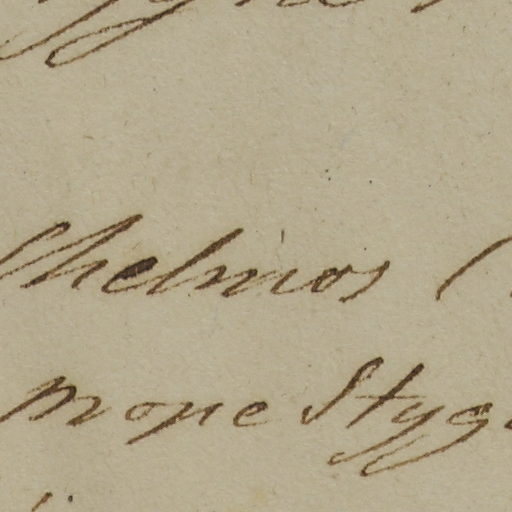 Chelmos (
prope Styg